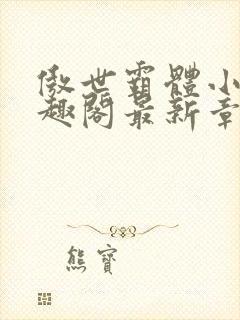 傲世霸體小
趣閣最新章
熊寶